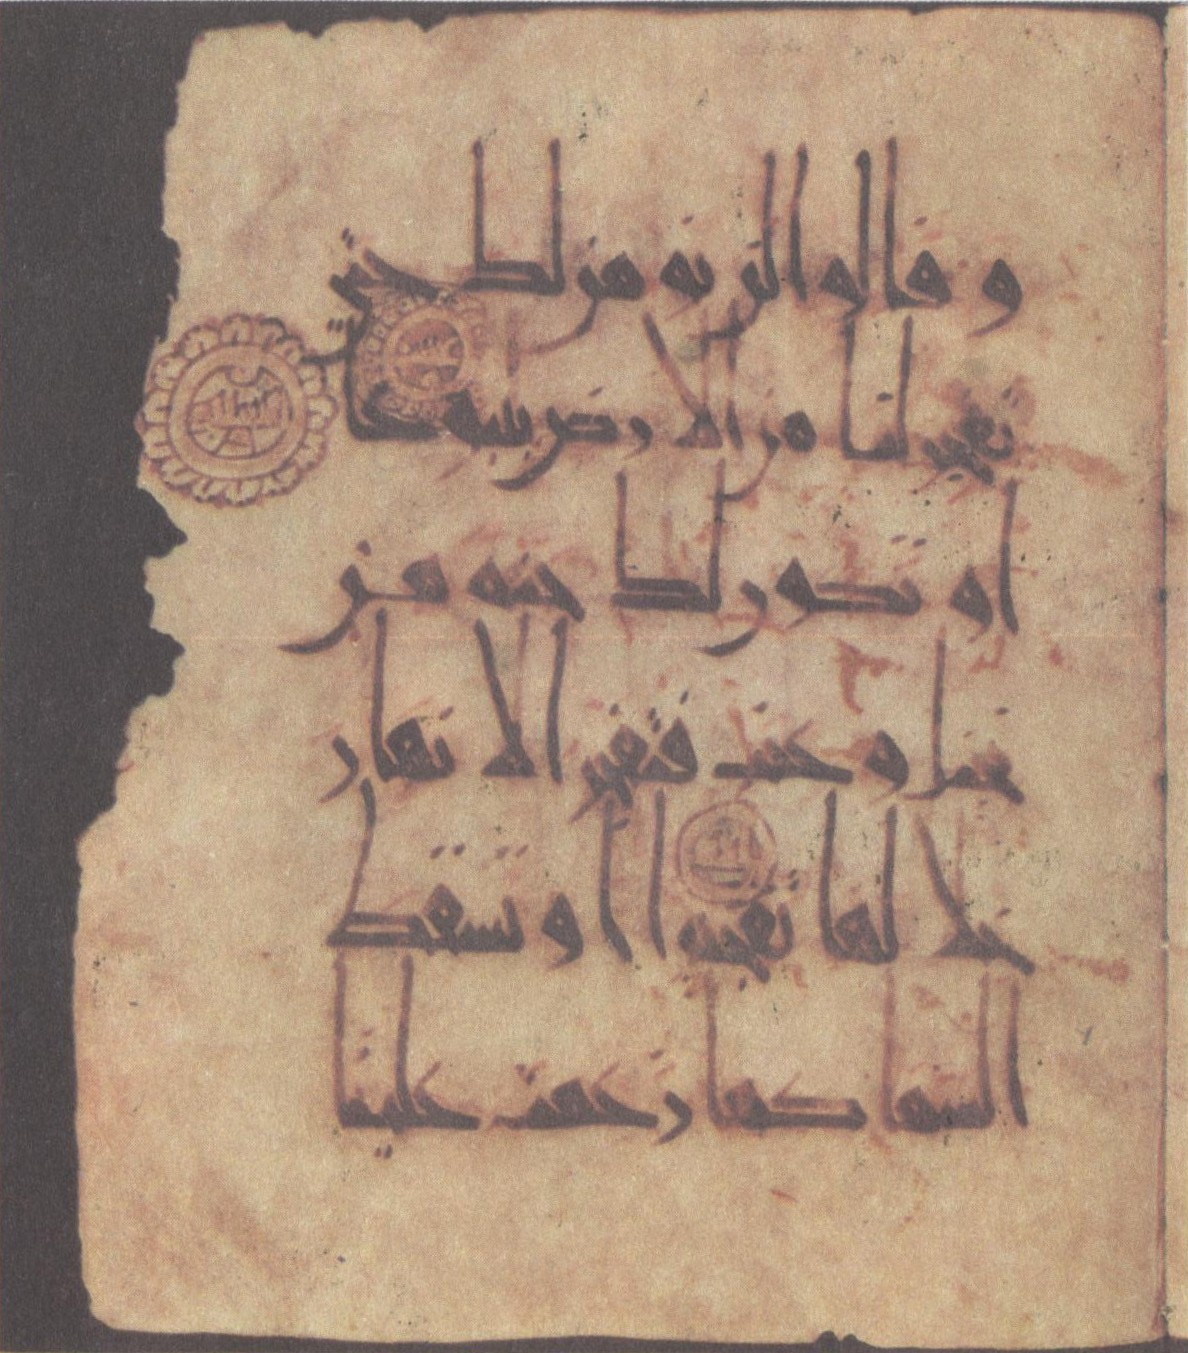 و قالوا لن نومن لك حتى
تفجر لنا من الارض ينبوعا
او تكون لك جنة من
نخيل و عنب فتفجر الانهار
خلالها تفجيرا او تسقط
السما كما زعمت علينا